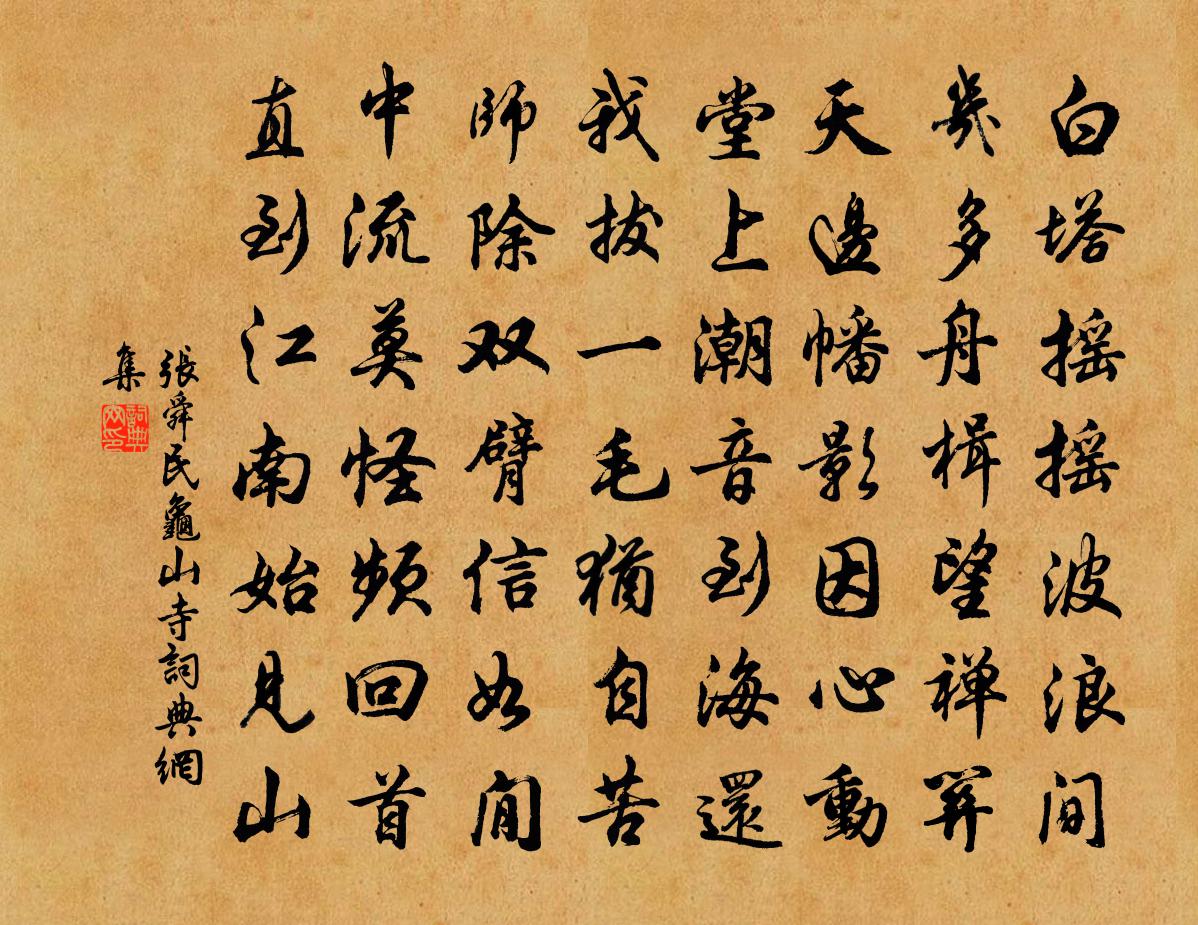 白塔摇摇波浪间
幾多舟楫望禅關
天邊幡影因心動
堂上潮音到海還
我拔一毛猶自苦
師除双臂信如閒
中流莫怪頻回首
直到江南始見山
張舜民龜山寺詞典網
集
詞典網印